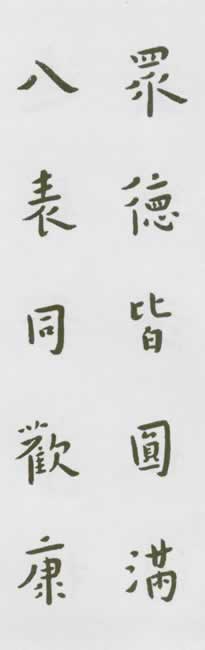 眾德皆圓滿
八表同歡康